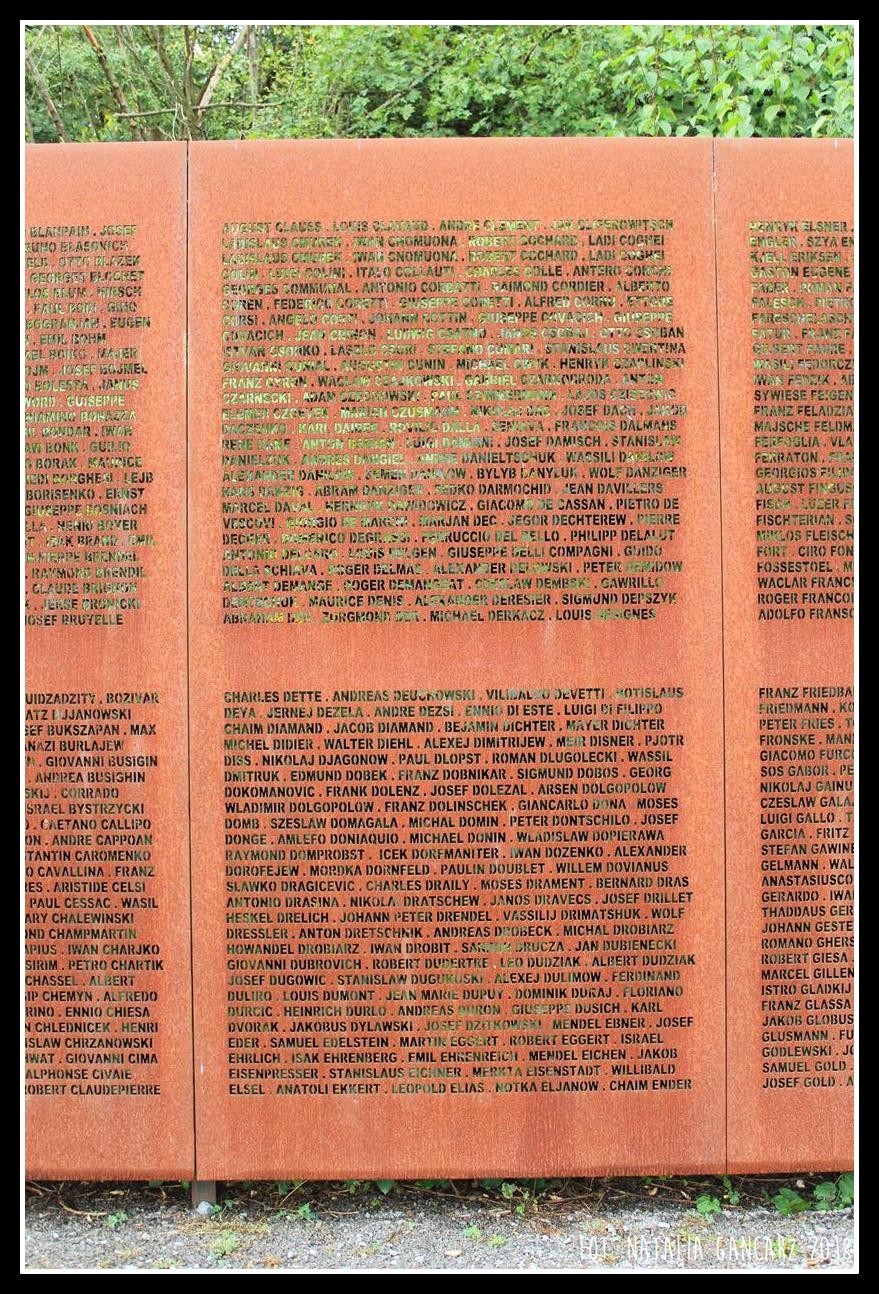 BLANPAIN . JOSEF
BRUNO BLASOVICH
OTTO BLAZEK
GEORGES BLOCHET
BLUM . HIRSCH
PAUL BOBI . GINO
BOGRANJAN . EUGEN
EMIL BOHM
BOIKO . MAJER
JOSEF BOJMEL
BOLESTA . JANUS
GUISEPPE
BENIAMINO BONAZZA
BONDAR . IWAN
BONK . GUILIO
BORAK . MAURICE
BORGHEAI . LEJB
BORISENKO . ERNST
GIUSEPPE BOSNIACH
HENRI BOYER
ISAK BRAND . EMIL
PIERRE BRENDEL
RAYMOND BRENDIL
CLAUDE BRIGNON
JERSE BRONICKI
JOSEF BRUYELLE
BOZIVAR
BUJANOWSKI
BUKSZAPAN . MAX
BURLAJEW
GIOVANNI BUSIGIN
ANDREA BUSIGHIN
CORRADO
ISRAEL BYSTRZYCKI
CAETANO CALLIPO
ANDRE CAPPOAN
CAROMENKO
CAVALLINA . FRANZ
ARISTIDE CELSI
PAUL CESSAC . WASIL
CHALEWINSKI
CHAMPMARTIN
IWAN CHARJKO
PETRO CHARTIK
CHASSEL . ALBERT
CHEMYN . ALFREDO
ENNIO CHIESA
CHLEDNICEK . HENRI
CHRZANOWSKI
GIOVANNI CIMA
ALPHONSE CIVAIE
ROBERT CLAUDEPIERRE
AUGUST CLAUSS . LOUIS CLAVAUD . ANDRE CLEMENT . JAN CLIPEROWITSCH
LADISLAUS CMUREK . IWAN CNOMUONA . ROBERT COCHARD . LADI COGHEI
LADISLAUS CMUREK . IWAN CNOMUONA . ROBERT COCHARD . LADI COGHEI
COLIN . LUIGI COLINI . ITALO COLLAUTI . CHARLES COLLE . ANTERO
GEORGES COMMUNAL . ANTONIO CORBATTI . RAIMOND CORDIER . ALBERTO
COREN . FEDERICO CORETTI . GIUSEPPE CORETTI . ALFRED CORNU . ETTORE
CORSI . ANGELO COSSI . JOHANN COTTIN . GIUREPPE COVACICH . GIUSEPPE
COVACICH . JEAN CRINON . LUDWIG CSATHO . JANOS CSEBRI . OTTO CSOBAN
ISTVAN CSONKO . LASZLO CSURI . STEFANO CUNARI . STANISLAUS CWERTINA
GIOVANNI CUNIAL . AUGUSTIN CUNIN . MICHAEL CWIK . HENRYK CZAPLINSKI
FRANZ CYRON . WACLAW CZAJKOWSKI . GABRIEL CZARNOBRODA . ANTON
CZARNECKI . ADAM CZERSKOWSKI . PAUL CZIMMERMANN . LAJOS
ELEMER CZOEVEK . MARIAN CZUSMANN . NIKOLAJ DAC . JOSEF DACH . JAKOB
DACZENKO . KARL DAIRES . ROVILIO DALLA . GENAIVA . FRANCOIS DALMAHS
RENE DAME . ANTON DAMIAN . LUIGI DAMIANI . JOSEF DAMISCH . STANISLAW
DANIELZUK . ANDRES DANGIEL . ANDRE DANIELTSCHUK . WASSILI DANILOW
ALEXANDER DANILOW . SEMEN DANILOW . BYLYB DANYLUK . WOLF DANZIGER
HANS DANZIG . ABRAM DANZIGER . FEDKO DARMOCHID . JEAN DAVILLERS
MARCEL DAVAL . HENRYK DAWIDOWICZ . GIACOMO DE CASSAN . PIETRO DE
VESCOVI . GIORGIO DE MARCHI . MARJAN DEC . JEGOR DECHTEREW . PIERRE
DECKER . DOMENICO DEGRASSI . FERRUCCIO DEL BELLO . PHILIPP DELALUT
ANTONIO DELCARO . LOUIS DELGEN . GIUSEPPE DELLI COMPAGNI . GUIDO
DELLA SCHIAVA . ROGER DELMAS . ALEXANDER DELOWSKI . PETER DEMIDOW
ALBERT DEMANGE . ROGER DEMANGEAT . CZESLAW DEMBSKI . GAWRILLO
DEMTSCHUK . MAURICE DENIS . ALEXANDER DERESIER . SIGMUND DEPSZYK
ABRAHAM DER . ZORGMOND DER . MICHAEL DERKACZ . LOUIS DESIGNES
CHARLES DETTE . ANDREAS DEUCKOWSKI . VILIBALDO DEVETTI . BOTISLAUS
DEYA . JERNEJ DEZELA . ANDRE DEZSI . ENNIO DI ESTE . LUIGI DI FILIPPO
CHAIM DIAMAND . JACOB DIAMAND . BEJAMIN DICHTER . MAYER DICHTER
MICHEL DIDIER . WALTER DIEHL . ALEXEJ DIMITRIJEW . MEIR DISNER . PJOTR
DISS . NIKOLAJ DJAGONOW . PAUL DLOPST . ROMAN DLUGOLECKI . WASSIL
DMITRUK . EDMUND DOBEK . FRANZ DOBNIKAR . SIGMUND DOBOS . GEORG
DOKOMANOVIC . FRANK DOLENZ . JOSEF DOLEZAL . ARSEN DOLGOPOLOW
WLADIMIR DOLGOPOLOW . FRANZ DOLINSCHEK . GIANCARLO DONA . MOSES
DOMB . SZESLAW DOMAGALA . MICHAL DOMIN . PETER DONTSCHILO . JOSEF
DONGE . AMLEFO DONIAQUIO . MICHAEL DONIN . WLADISLAW DOPIERAWA
RAYMOND DOMPROBST . ICEK DORFMANITER . IWAN DOZENKO . ALEXANDER
DOROFEJEW . MORDKA DORNFELD . PAULIN DOUBLET . WILLEM DOVIANUS
SLAWKO DRAGICEVIC . CHARLES DRAILY . MOSES DRAMENT . BERNARD DRAS
ANTONIO DRASINA . NIKOLAI DRATSCHEW . JANOS DRAVECS . JOSEF DRILLET
HESKEL DRELICH . JOHANN PETER DRENDEL . VASSILIJ DRIMATSHUK . WOLF
DRESSLER . ANTON DRETSCHNIK . ANDREAS DROBECK . MICHAL DROBIARZ
HOWANDEL DROBIARZ . IWAN DROBIT . SANDOR DRUCZA . JAN DUBIENECKI
GIOVANNI DUBROVICH . ROBERT DUDERTRE . LEO DUDZIAK . ALBERT DUDZIAK
JOSEF DUGOWIC . STANISLAW DUGUKUSKI . ALEXEJ DULIMOW . FERDINAND
DULIRO . LOUIS DUMONT . JEAN MARIE DUPUY . DOMINIK DURAJ . FLORIANO
DURCIC . HEINRICH DURLO . ANDREAS DURON . GIUSEPPE DUSICH . KARL
DVORAK . JAKOBUS DYLAWSKI . JOSEF DZITKOWSKI . MENDEL EBNER . JOSEF
EDER . SAMUEL EDELSTEIN . MARTIN EGGERT . ROBERT EGGERT . ISRAEL
EHRLICH . ISAK EHRENBERG . EMIL EHRENREICH . MENDEL EICHEN . JAKOB
EISENPRESSER . STANISLAUS EICHNER . MERKTA EISENSTADT . WILLIBALD
ELSEL . ANATOLI EKKERT . LEOPOLD ELIAS . NOTKA ELJANOW . CHAIM ENDER
HENRYK ELSNER .
ENGLER . SZYA
KJELL ERIKSEN .
GASTON EUGENE
FADER . ROMAN
FALESCH . PIETRO
FATUR . FRANZ
GILBERT FAURE .
WASILI FEDORCZ
IWAN FEDZIK .
SYWIESE FEIGEN
FRANZ FELADZIA
MAJSCHE FELDM
FERFOGLIA . VLA
FERRATON .
GEORGIOS
AUGUST FINGUS
FISCH . LUZER
FISCHTERIAN .
MIKLOS FLEISCH
FORT . CIRO FON
FOSSESTOEL . M
WACLAR FRANC
ROGER FRANCOI
ADOLFO FRANSC
FRANZ FRIEDBA
FRIEDMANN . KO
PETER FRIES .
FRONSKE . MAN
GIACOMO FURCO
SOS GABOR . PE
NIKOLAJ GAINU
CZESLAW GALA
LUIGI GALLO . T
GARCIA . FRITZ
STEFAN GAWINE
GELMANN . WAL
ANASTASIUSCO
GERARDO . IWA
THADDAUS GER
JOHANN GESTE
ROMANO GHERS
ROBERT GIESA .
MARCEL GILLEN
ISTRO GLADKIJ
FRANZ GLASSA
JAKOB GLOBUS
GLUSMANN . FU
GODLEWSKI . JO
SAMUEL GOLD .
JOSEF GOLD . A
FOT. NATALIA GANCARZ 2018